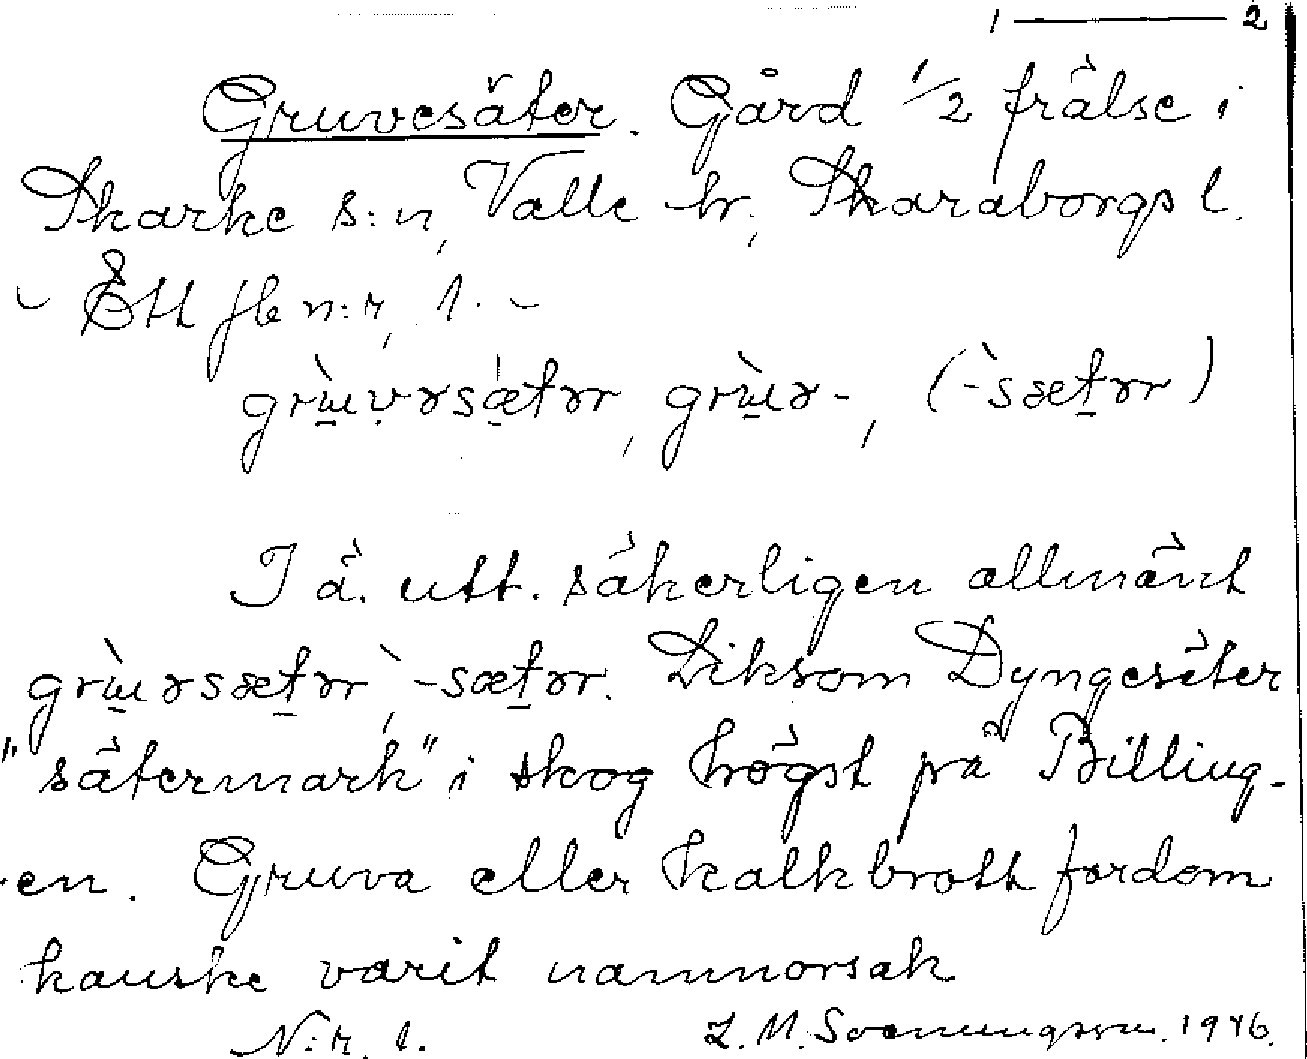 1 — 2
Gruvesäter. Gård 1/2 frälse i
Skarke s:n, Valle hr, Skaraborgs l.
- Ett jb n:r, 1. -
grùvəsætər, grùə-, (-̀sætər)
I ä. utt. säkerligen allmänt
grùəsætər, -̀sætər. Liksom Dyngesäter
"sätermark" i skog högst på Billing-
en. Gruva eller kalkbrott fordom
kanske varit namnorsak
N:r. 1. L. M. Svenungsson. 1946.